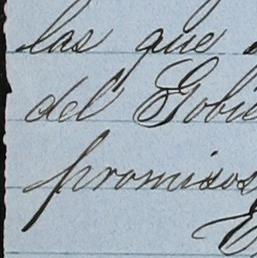 las que
del Gobie
promisos